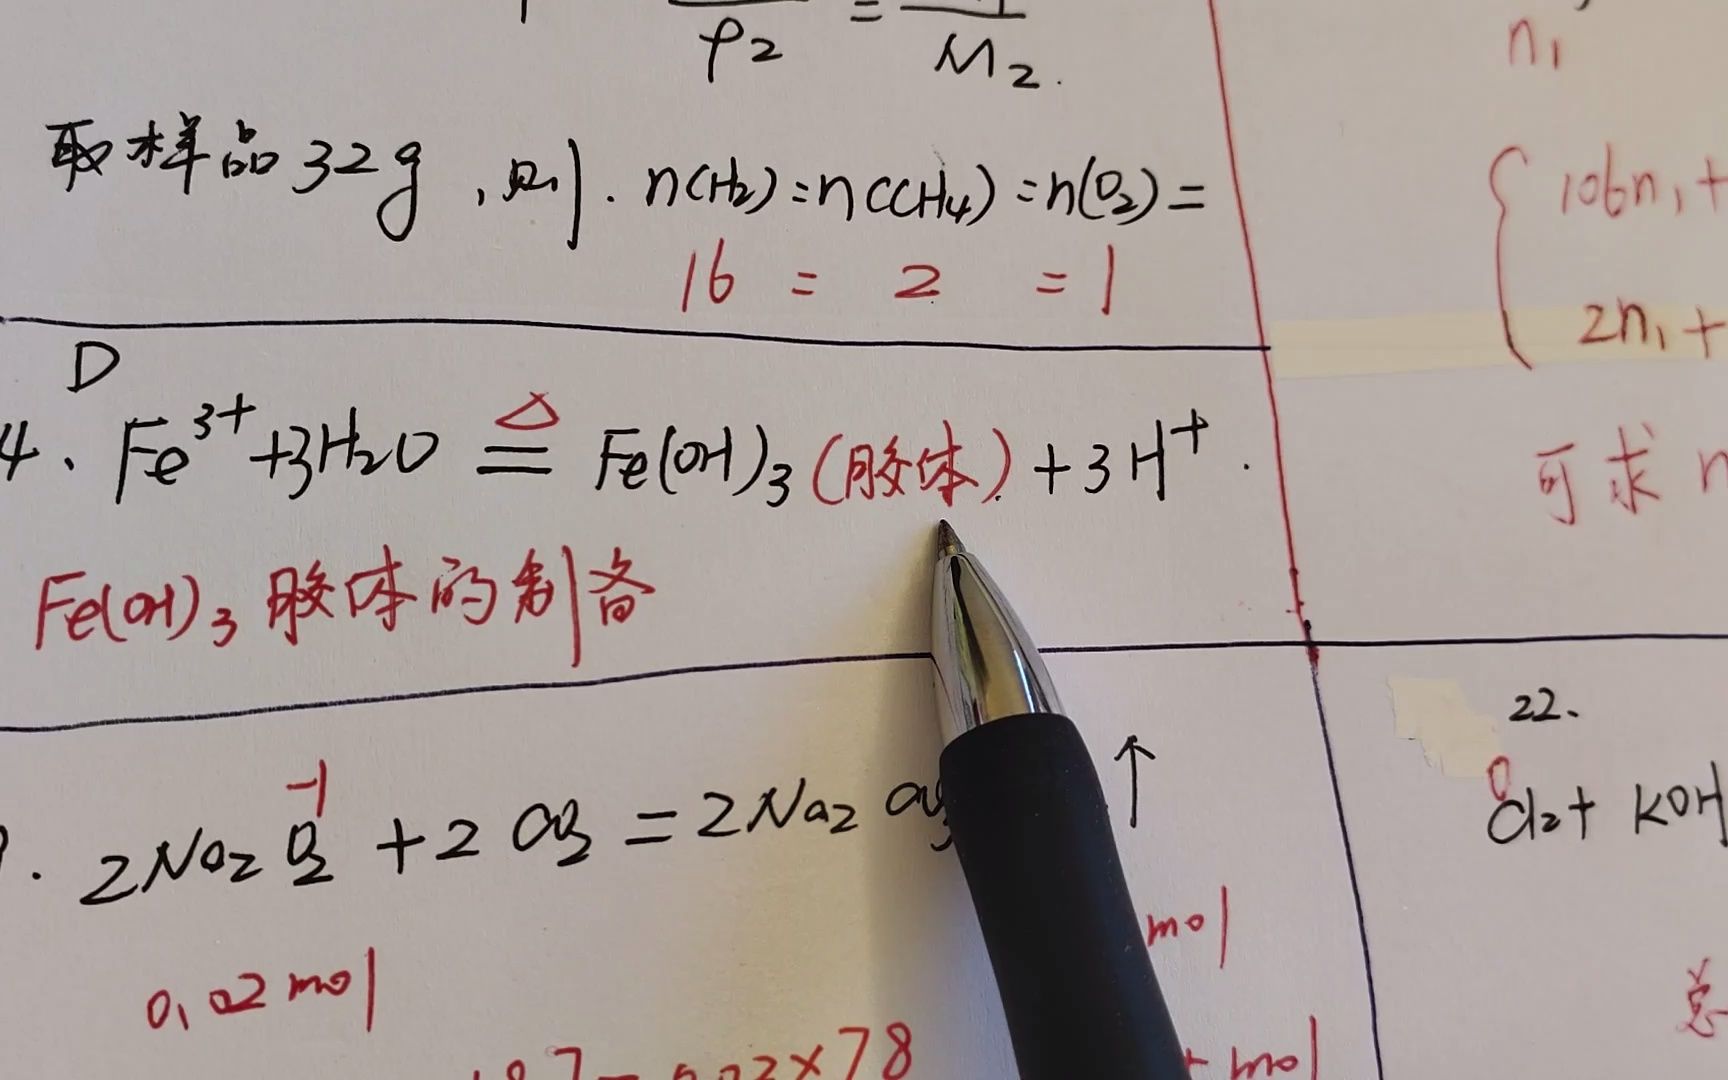 ρ2 = M2.
取样品32g,则. n(H2):n(CH4):n(O2)=
16 : 2 : 1
D
4. Fe³⁺+3H2O ≜ Fe(OH)3(胶体)+3H⁺.
Fe(OH)3胶体的制备
-1
2Na2O2+2CO2=2Na2CO3 ↑
0.02mol
mol
×78
mol
n1
106n1+
2n1+
可求n
22.
0
Cl2+KOH
总